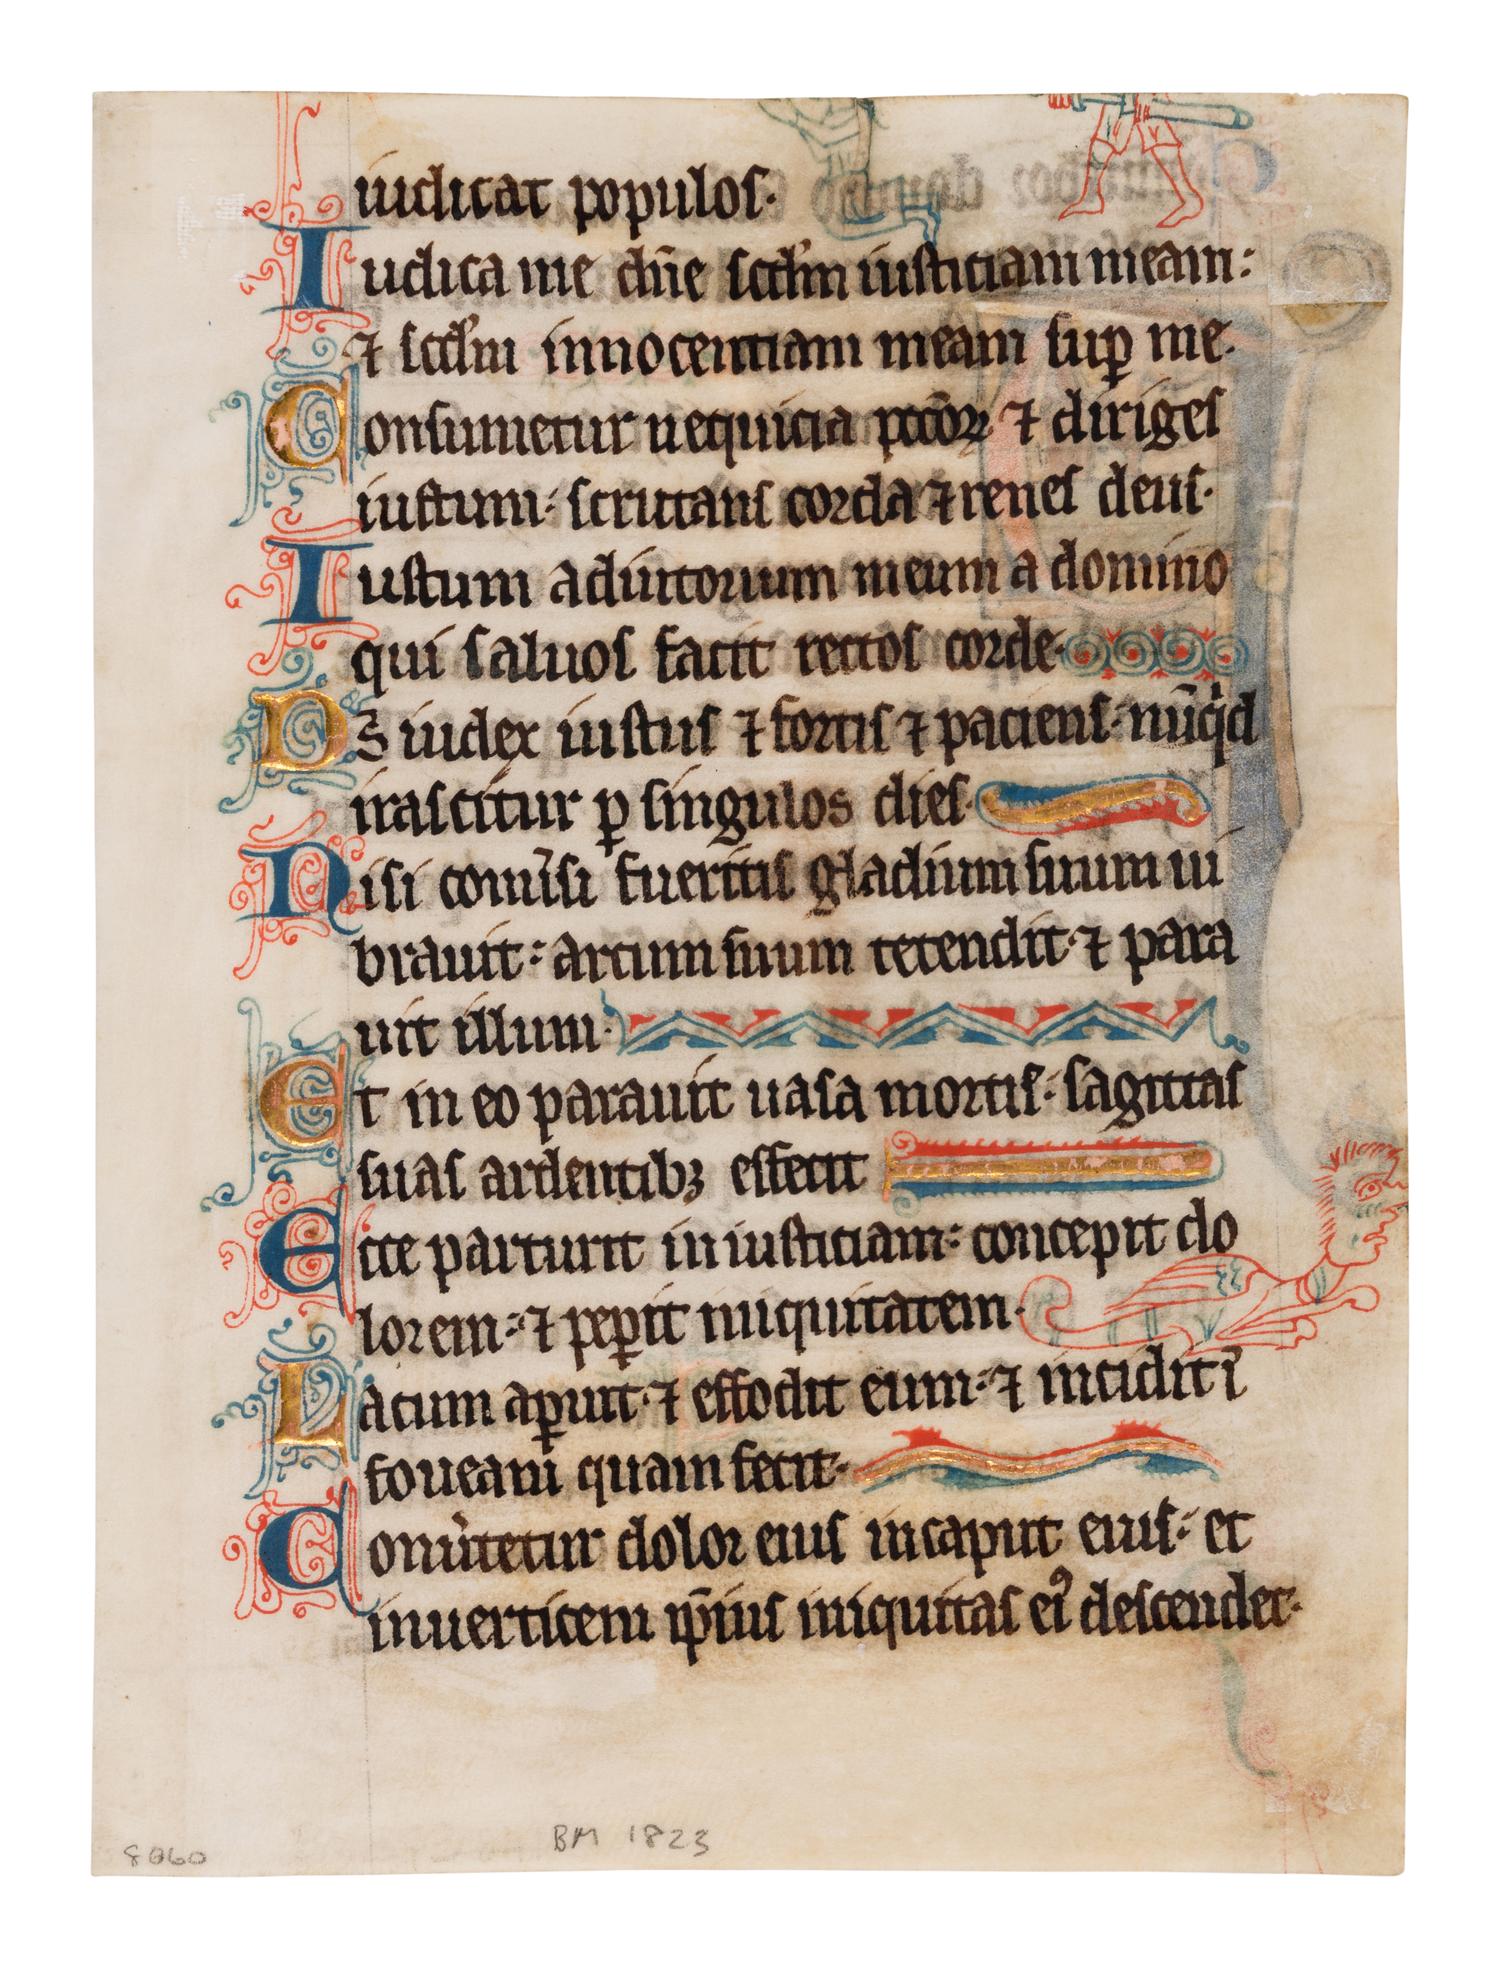 iudicat populos.
Iudica me dn̄e scd̄m iusticiam meam:
⁊ scd̄m innocentiam meam suꝑ me.
Consumetur nequicia pccōꝝ ⁊ diriges
iustum: scrutans corda ⁊ renes deus.
Iustum adiutorium meum a domino
qui saluos facit rectos corde.
Ds̄ iudex iustus ⁊ fortis ⁊ paciens. nūqͥd
irascitur ꝑ singulos dies.
Nisi conu̾si fueritis gladium suum ui
brauit: arcum suum tetendit ⁊ para
uit illum.
Et in eo parauit uasa mortis: sagittas
suas ardentibꝫ effecit
Ecce parturit iniusticiam: concepit do
lorem: ⁊ peꝑit iniquitatem.
Lacum aꝑuit ⁊ effodit eum: ⁊ incidit ī
foueam quam fecit.
Conu̾tetur dolor eius in caput eius: et
in uerticem ip̄ius iniquitas eiꝰ descendet.
8060
BM 1823